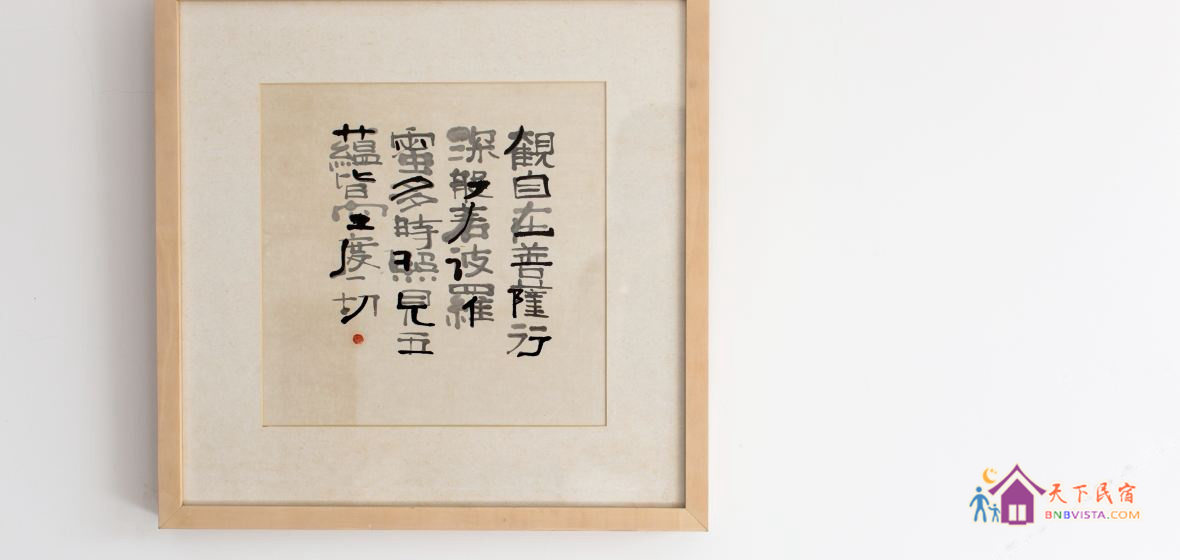 觀自在菩薩行
深般若波羅
蜜多時照見五
蘊皆空度一切
天下民宿
BNBVISTA.COM